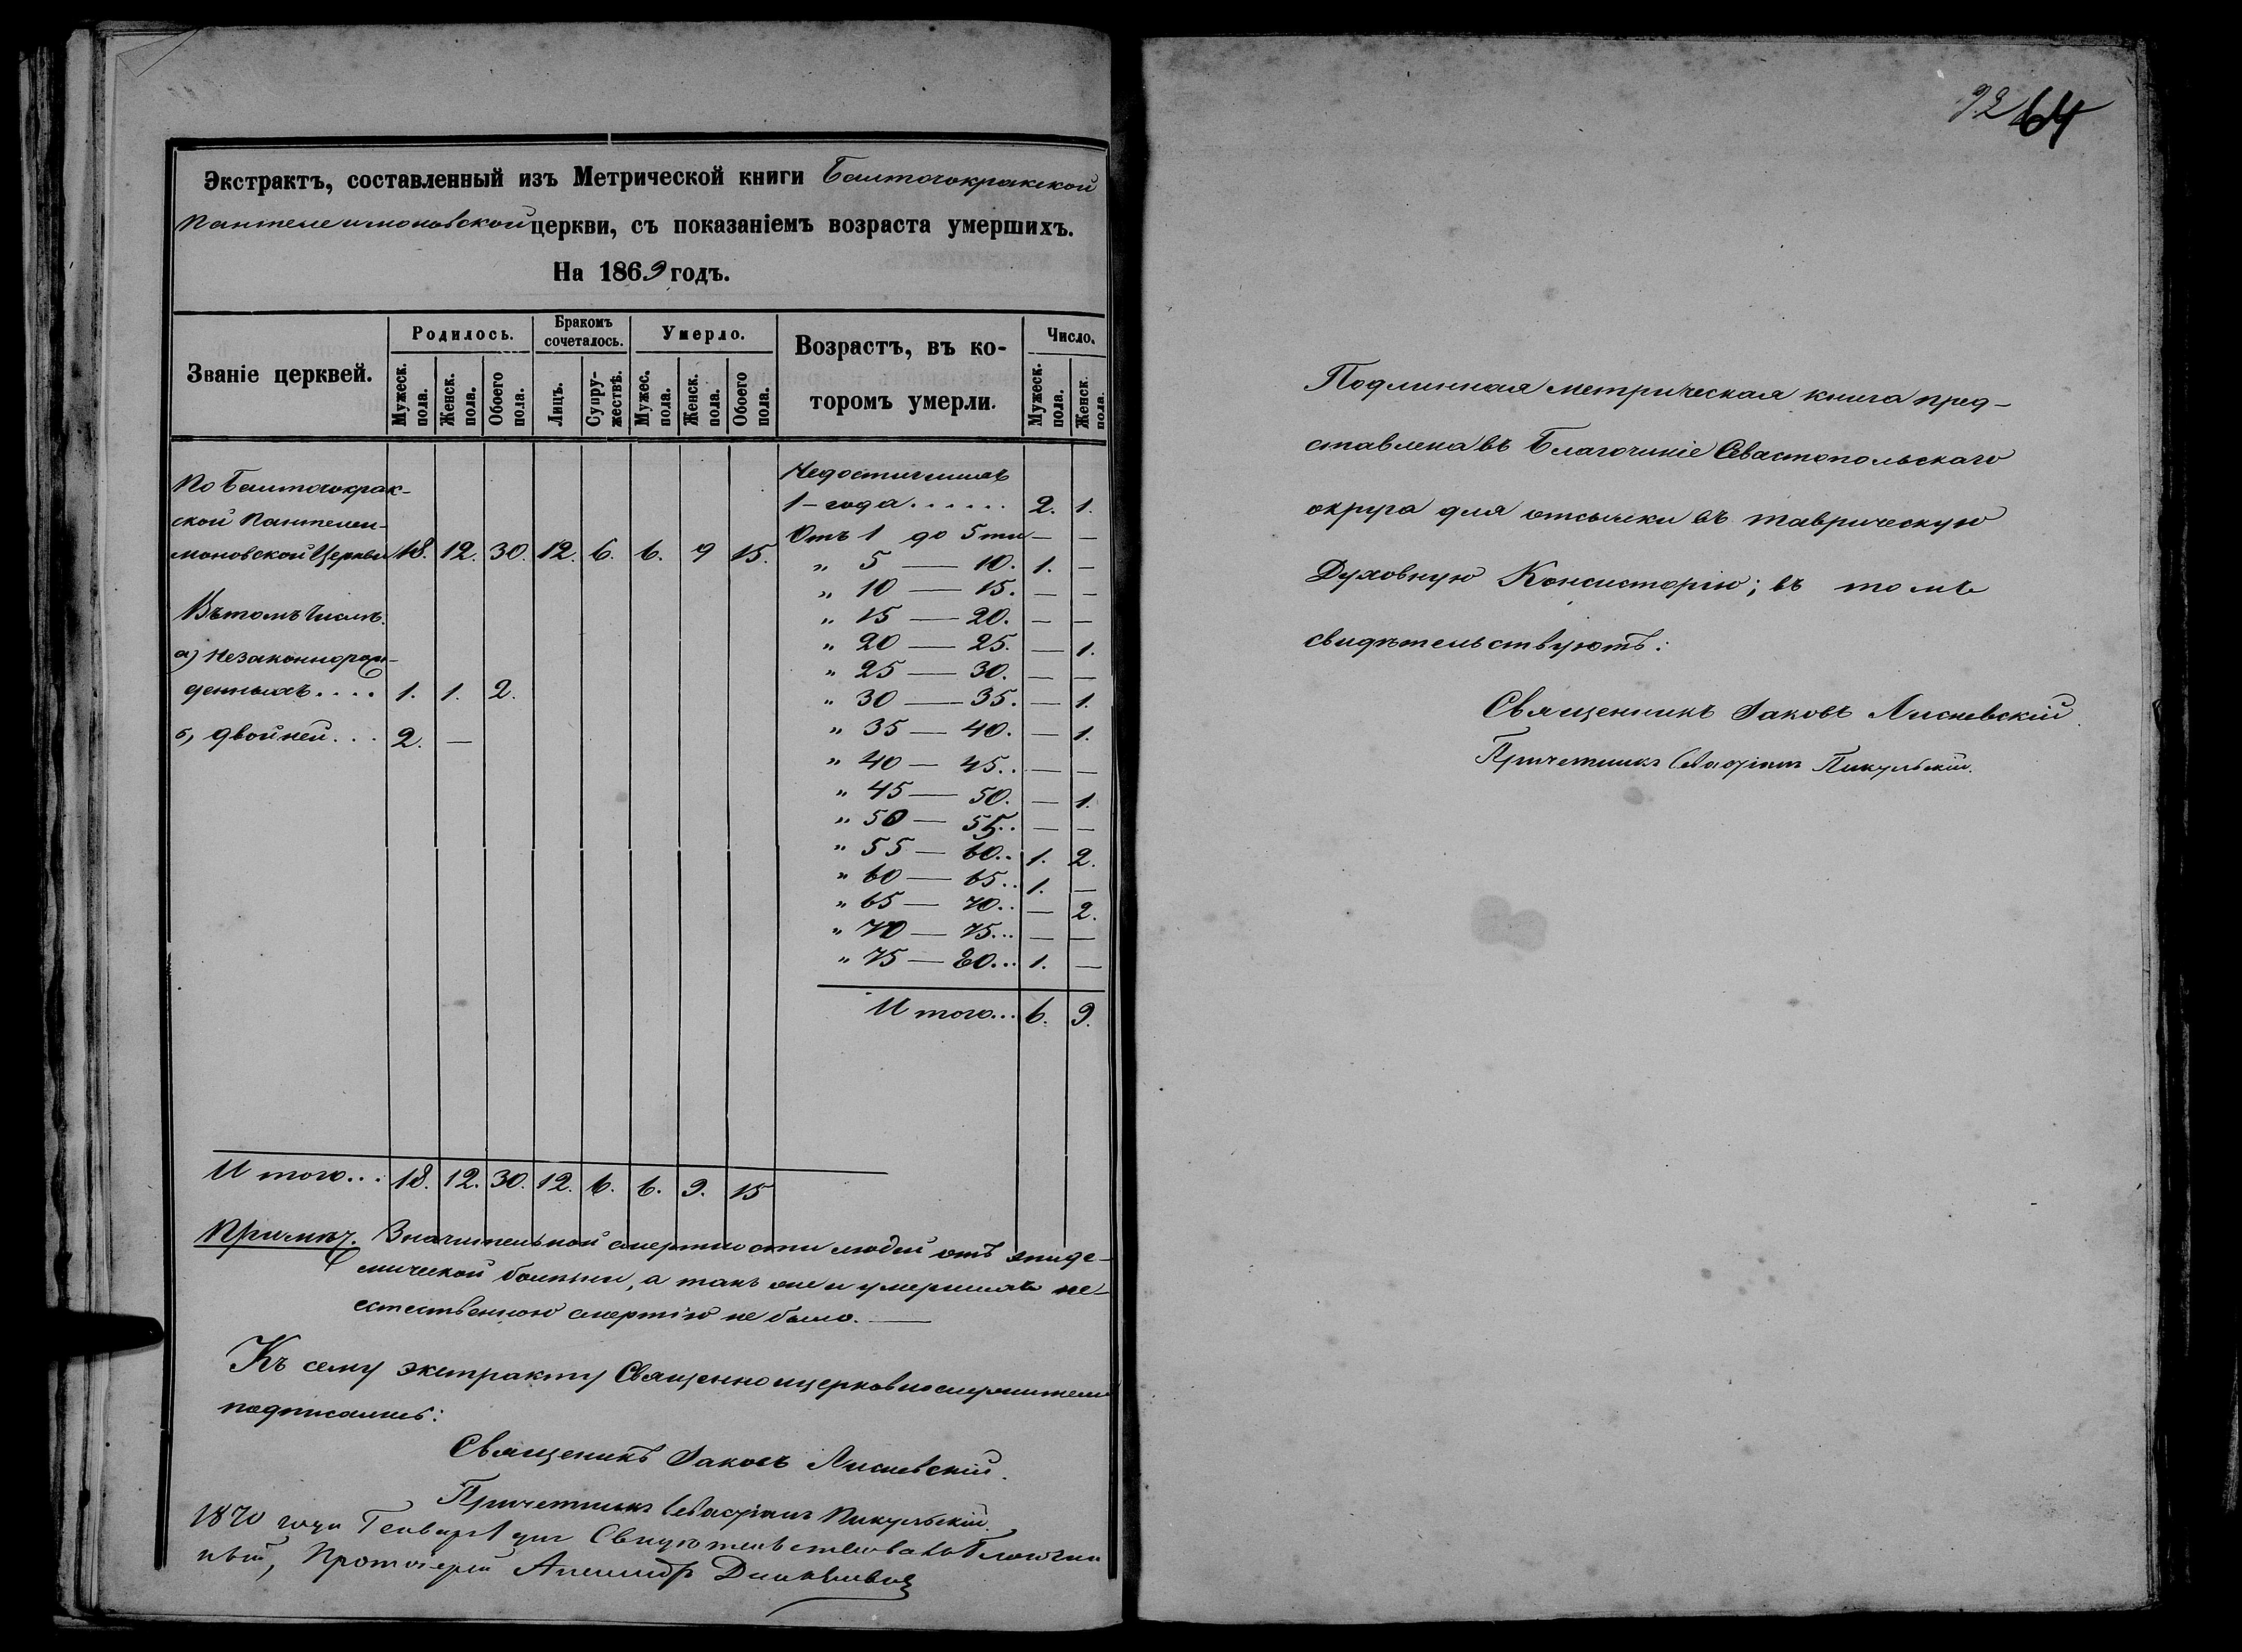 Экстрактъ, составленный изъ Метрической книги
Пантелеимоновской церкви, съ показаніемъ возраста умершихъ.
На 1869 годъ.
Званіе церквей.
Родилось.
Бракомъ сочеталось.
Умерло.
Возрастъ, въ ко-
торомъ умерли.
Число.
Мужеск. пола.
Женск. пола.
Обоего пола.
Лицъ.
Супру-жествъ.
Мужес. пола.
Женск. пола.
Обоего пола.
Мужеск. пола.
Женск. пола.
По
ской Пантелеи-
моновской Церкви 18. 12. 30. 12. 6. 6. 9 15.
Въ томъ числѣ:
а) Незаконнорож-
денныхъ.... 1. 1. 2.
б, двойней... 2. —
Недостигшихъ
1-года...... 2. 1.
Отъ 1 до 5ти — —
" 5 — 10. 1. —
" 10 — 15. — —
" 15 — 20. — —
" 20 — 25. — 1.
" 25 — 30. — —
" 30 — 35. — 1.
" 35 — 40. — 1.
" 40 — 45.. — —
" 45 — 50. — 1.
" 50 — 55.. — —
" 55 — 60.. 1. 2.
" 60 — 65.. 1. —
" 65 — 70.. — 2.
" 70 — 75... — —
" 75 — 80... 1. —
Итого... 6. 9.
Итого... 18. 12. 30. 12. 6. 6. 9. 15
Примѣч. Значительной смертности людей отъ эпиде-
мической болѣзни, а такъ же и умершихъ не-
естественною смертію не было. —
Къ сему экстракту Священноицерковнослужители
подписались:
Священикъ Іаковъ Лисневскій.
Причетникъ Пикульскій.
1870 года Генваря 1 дня Свидѣтельствовалъ Благочин
ный, Протоіерей
92 64
Подлинная метрическая книга пред-
ставлена въ Благочиніе Севастопольскаго
округа для отсылки въ таврическую
Духовную Консисторію; въ томъ
свидѣтельствуютъ:
Священникъ Іаковъ Лисневскій.
Причетникъ Пикульскій.